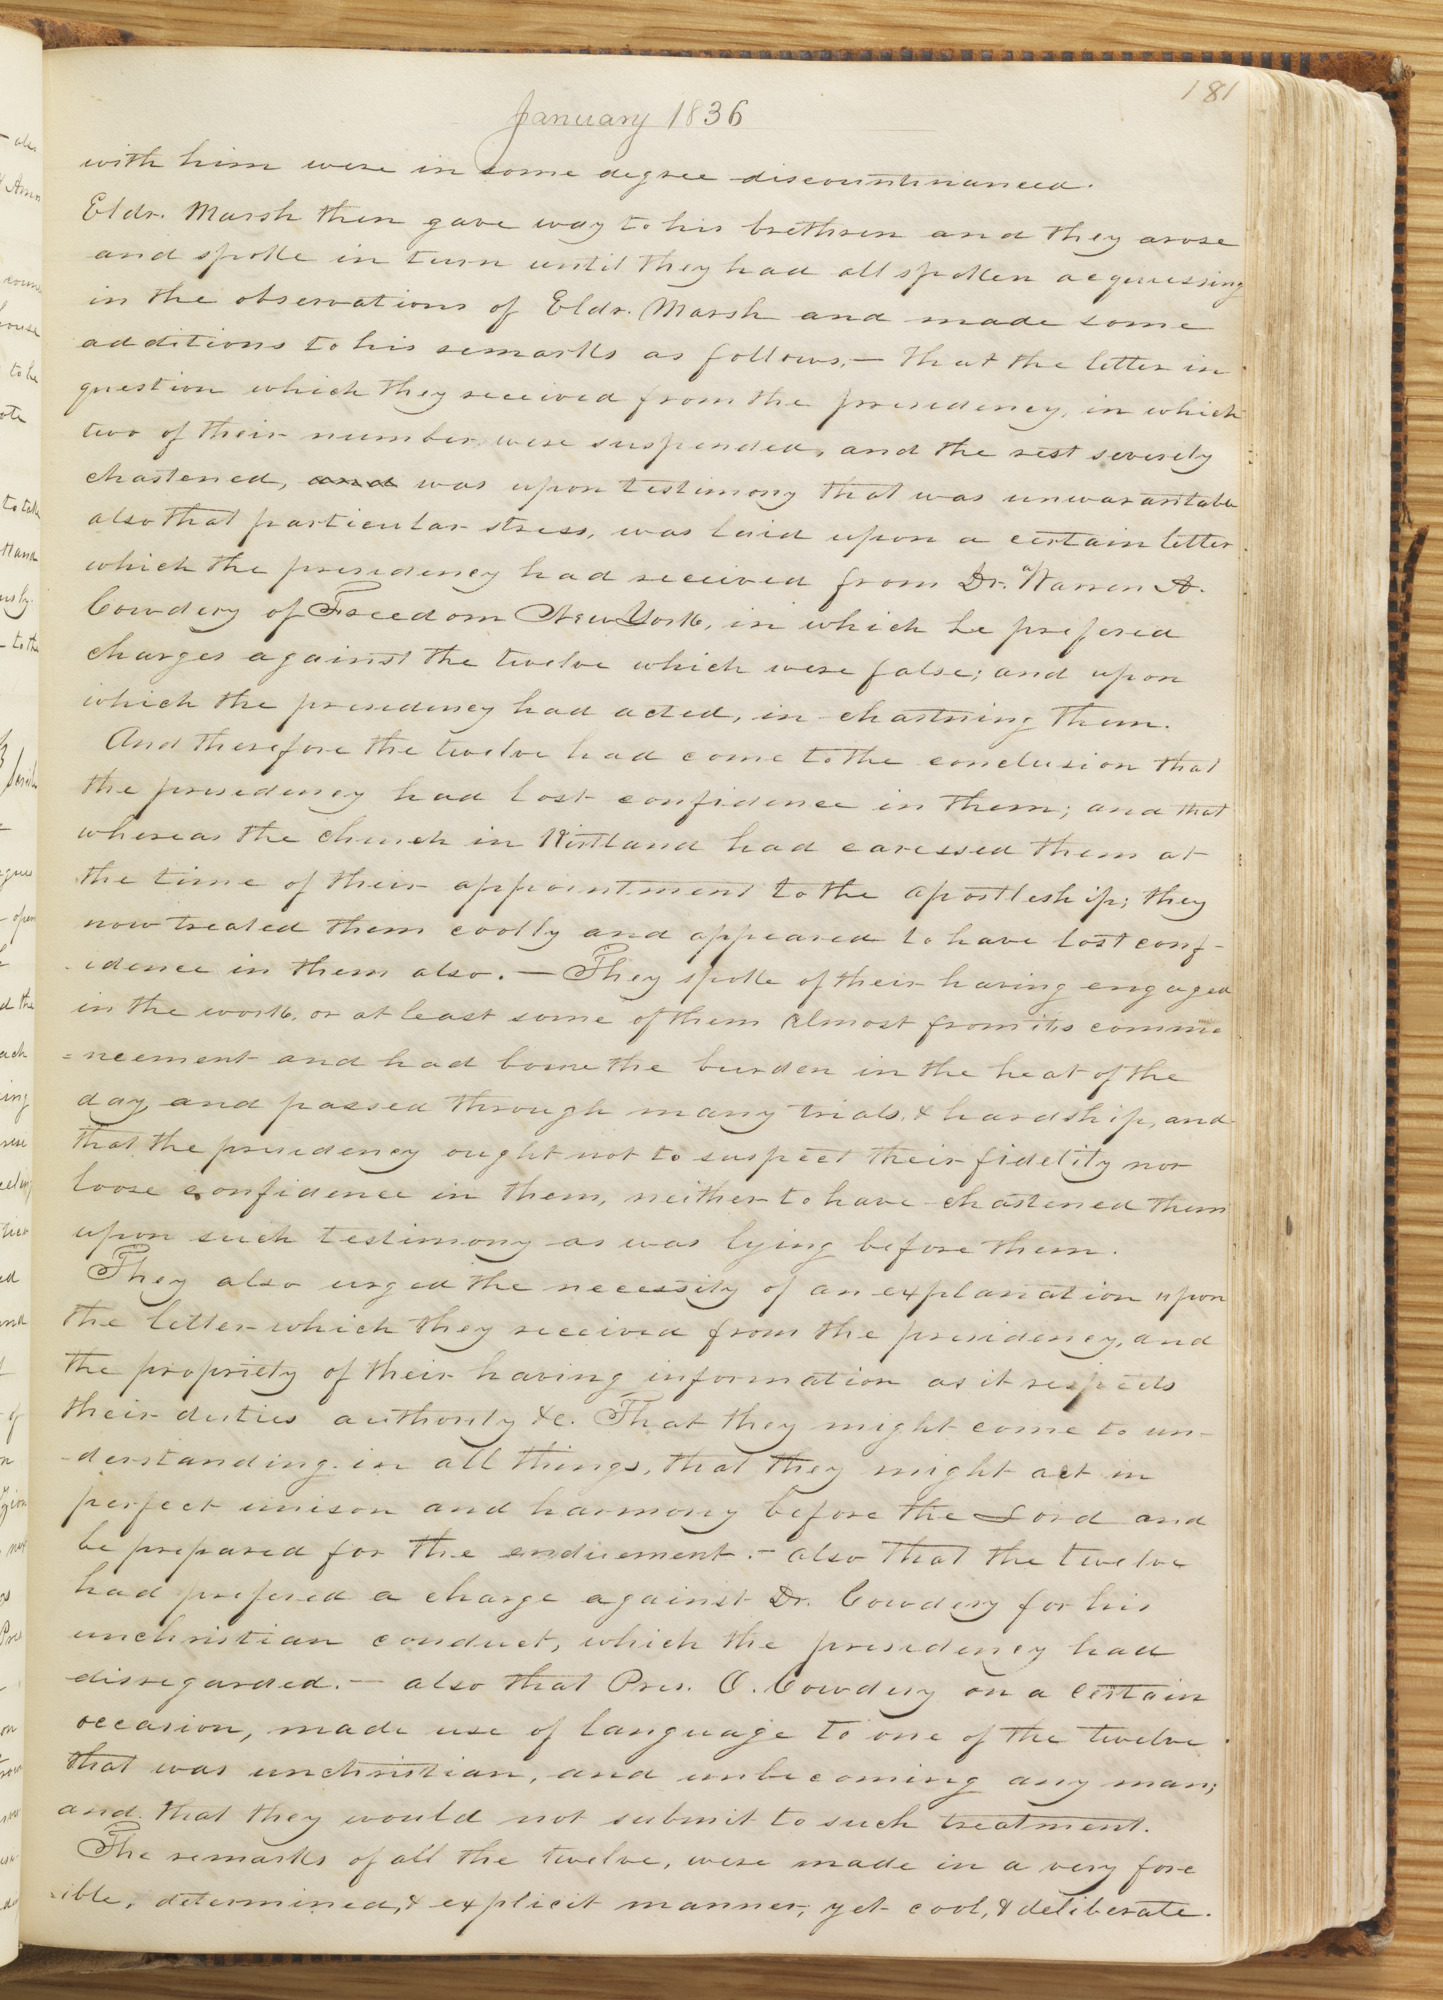 181
January 1836
with him were in some degree discountinanced.
Eldr. Marsh then gave way to his brethren and they arose
and spoke in turn until they had all spoken acquiessing
in the observations of Eldr. Marsh and made some
additions to his remarks as follows.— that the letter in
question which they received from the presidency, in which
two of their number were suspended, and the rest severely
chastened, and was upon testimony that was unwarantable
also that particular stress, was laid upon a certain letter
which the presidency had received from Dr. Warren A.
Cowdery of Freedom New York, in which he prefered
charges against the twelve which were false; and upon
which the presidency had acted, in chastning them.
And therefore the twelve had come to the conclusion that
the presedency had lost confidence in them; and that
whereas the church in Kirtland had caressed them at
the time of their appointment to the apostleship; they
now treated them coolly and appeared to have lost conf-
idence in them also.— They spoke of their having engaged
in the work, or at least some of them almost from its comme
=ncement and had borne the burden in the heat of the
day and passed through many trials, & hardship, and
that the presidency ought not to suspect their fidelity nor
loose confidence in them, neither to have chastened them
upon such testimony as was lying before them.
They also urged the necessity of an explanation upon
the letter which they received from the presidency, and
the propriety of their having information as it respects
their duties authority &c. That they might come to un-
-derstanding in all things, that they might act in
perfect unison and harmony before the Lord and
be prepared for the enduement.— also that the twelve
had prefered a charge against Dr. Cowdery for his
unchristian conduct, which the presidency had
disregarded.— also that Pres. O. Cowdery on a certain
occasion, made use of language to one of the twelve
that was unchristian, and unbecoming any man;
and that they would not submit to such treatment.
The remarks of all the twelve, were made in a very forc
-ible, determined, & explicit manner; yet cool, & deliberate.